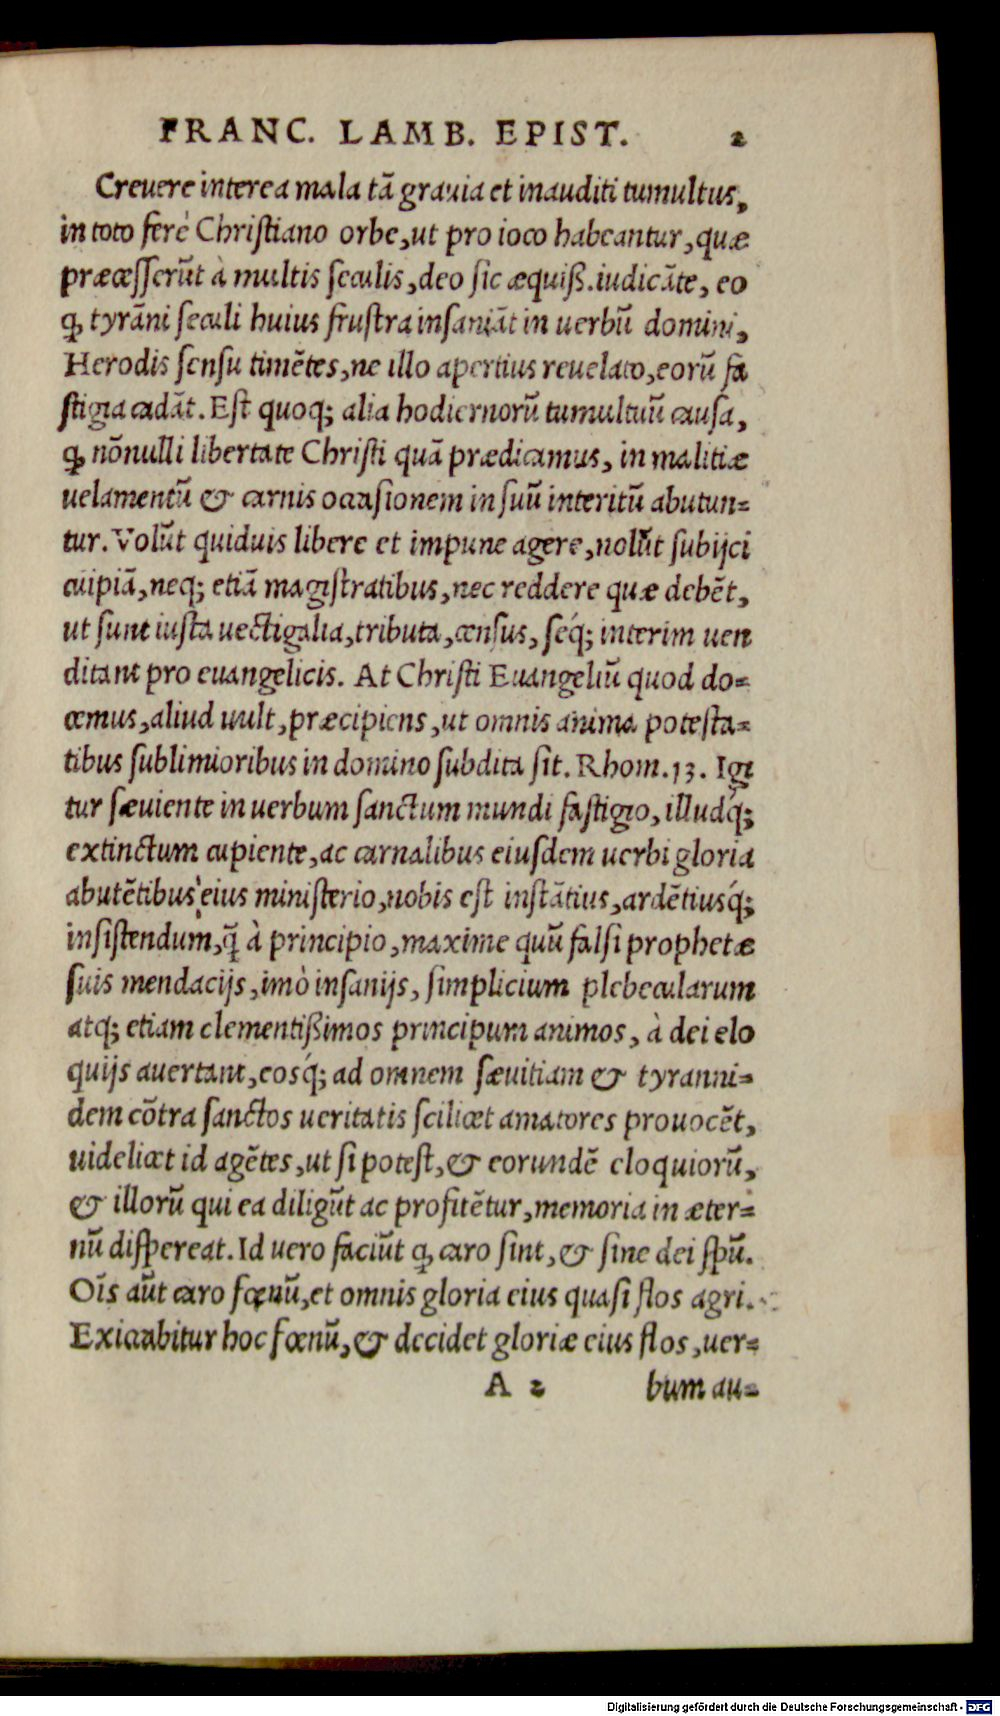 FRANC. LAMB. EPIST. 2
Creuere interea mala tã grauia et inauditi tumultus,
in toto ferè Christiano orbe, ut pro ioco habeantur, quæ
præcesserũt à multis seculis, deo sic æquiß. iudicãte, eo
ꝙ tyrãni seculi huius frustra insaniãt in uerbũ domini,
Herodis sensu timẽtes, ne illo apertius reuelato, eorũ fa
stigia cadãt. Est quoq; alia hodiernorũ tumultuũ causa,
ꝙ nõnulli libertate Christi quã prædicamus, in malitiæ
uelamentũ & carnis occasionem in suũ interitũ abutun=
tur. Volũt quiduis libere et impune agere, nolũt subijci
cuipiã, neq; etiã magistratibus, nec reddere quæ debẽt,
ut sunt iusta uectigalia, tributa, census, seq́; interim uen
ditant pro euangelicis. At Christi Euangeliũ quod do=
cemus, aliud uult, præcipiens, ut omnis anima potesta=
tibus sublimioribus in domino subdita sit. Rhom. 13. Igi
tur sæuiente in uerbum sanctum mundi fastigio, illudq́;
extinctum cupiente, ac carnalibus eiusdem uerbi gloria
abutẽtibus, eius ministerio, nobis est instãtius, ardẽtiusq́;
insistendum, q̃ à principio, maxime quũ falsi prophetæ
suis mendacijs, imò insanijs, simplicium plebecularum
atq; etiam clementißimos principum animos, à dei elo
quijs auertant, eosq́; ad omnem sæuitiam & tyranni=
dem cõtra sanctos ueritatis scilicet amatores prouocẽt,
uidelicet id agẽtes, ut si potest, & eorundẽ eloquiorũ,
& illorũ qui ea diligũt ac profitẽtur, memoria in æter=
nũ dispereat. Id uero faciũt ꝙ caro sint, & sine dei spũ.
Oĩs aũt caro fœnũ, et omnis gloria eius quasi flos agri.
Exiccabitur hoc fœnũ, & decidet gloriæ eius flos, uer=
A 2 bum au=
Digitalisierung gefördert durch die Deutsche Forschungsgemeinschaft - DFG